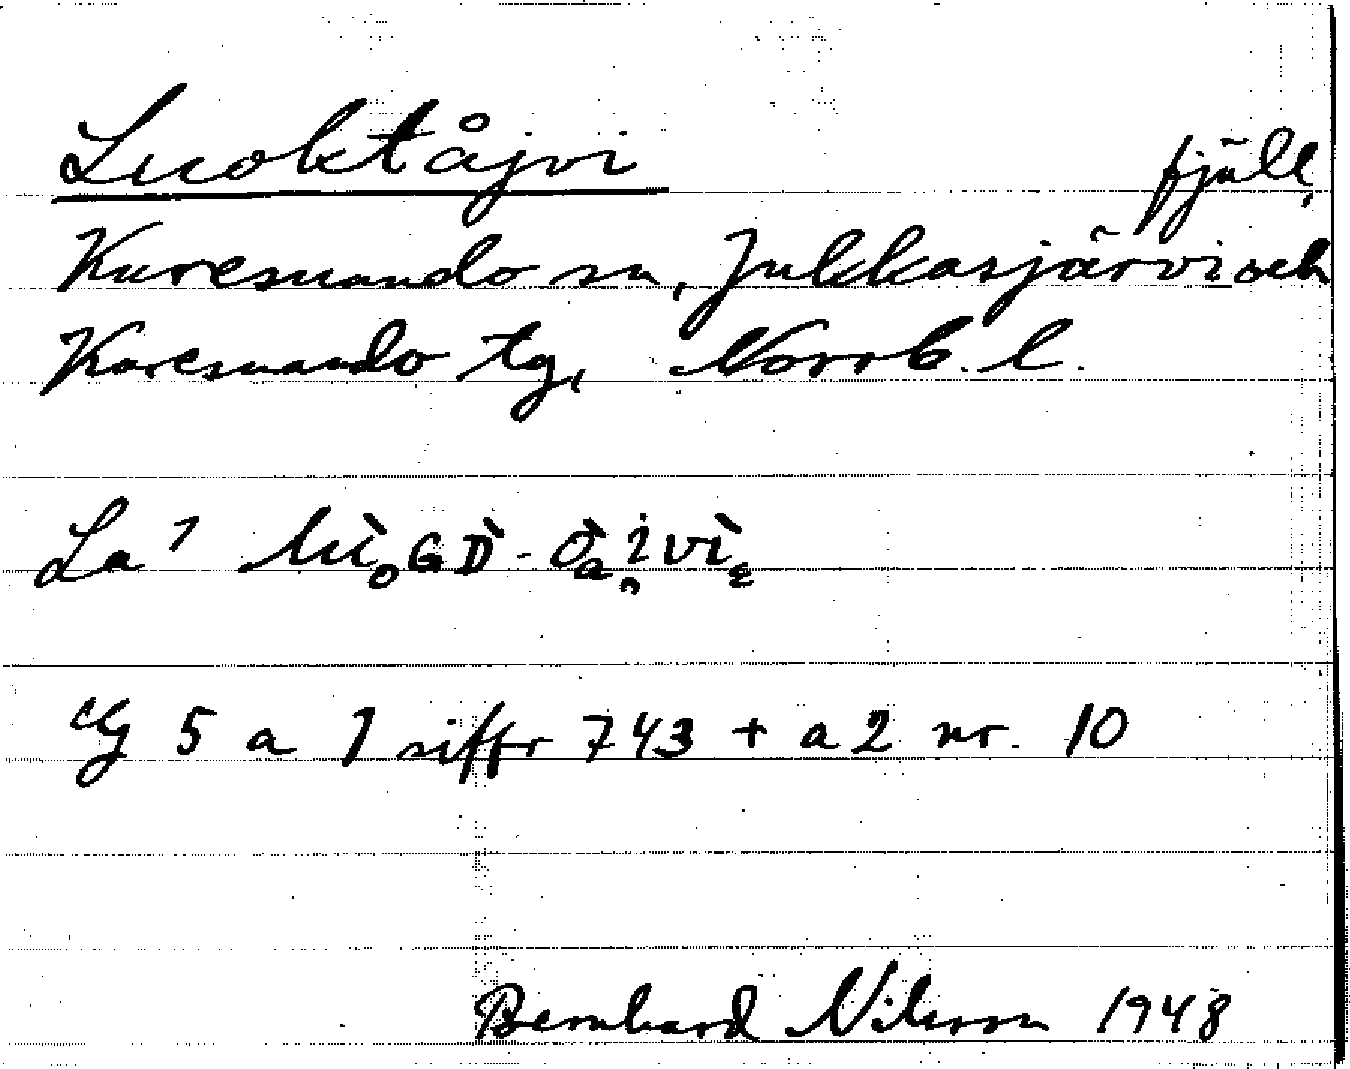 Luoktåjvi fjäll,
Karesuando sn, Jukkasjärvi och
Karesuando tg, Norrb. l.
La 1
Eg 5 a 1 siffr 743 + a 2 nr. 10
Bernhard Nilsson 1948